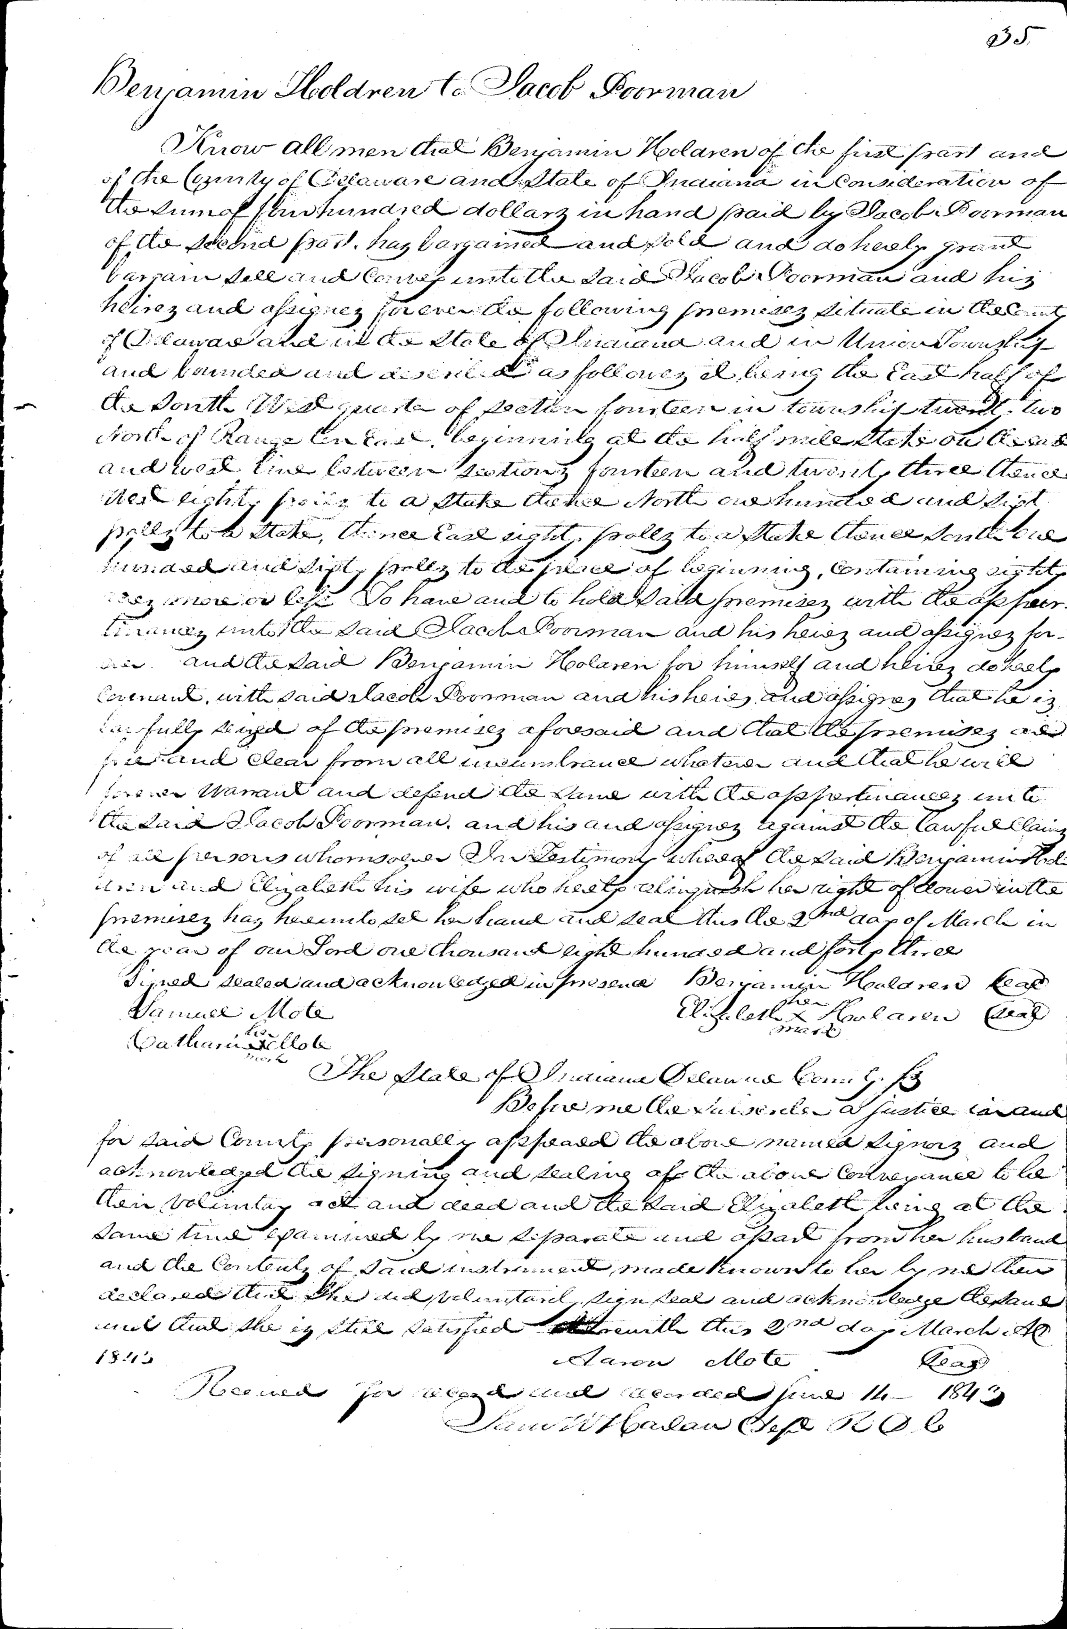 35.
Benjamin Holdren to Jacob Poorman
Know all men that Benjamin Holdren of the first part and
of the County of Delaware and State of Indiana in Consideration of
the sum of four hundred dollars in hand paid by Jacob Poorman
of the second part. has bargained and sold and do hereby grant
bargain sell and Convey unto the said Jacob Poorman and his
heires and assignes forever the following premises situate in the County
of Delaware and in the State of Indiana and in Union Township
and bounded and described as followes it being the East half of
the South West quarter of section fourteen in township twenty two
North of Range ten East, beginning at the half mile stake on the east
and west line between sections fourteen and twenty three thence
West eighty poles to a stake thence North one hundred and sixty
polls to a stake, thence East eighty polls to a stake thence South one
hundred and sixty polls to the place of beginning, Containing eighty
acres more or less To have and to hold said premises with the appur-
tinances unto the said Jacob Poorman and his heires and assignes for-
ever. and the said Benjamin Holdren for himself and heires do herely
Covenant, with said Jacob Poorman and his heires and assignes that he is
lawfully seized of the premises aforesaid and that the premises are
free and clear from all incumbrance whatever and that he will
forever Warrant and defend the same with the appertinances unto
the said Jacob Poorman. and his and assignes against the lawful Claims
of all persons whomsoever In Testimony whereof the said Benjamin Hol-
dren and Elizabeth his wife who herely relinquish her right of dower in the
premises has hereunto set her hand and seal this the 2nd day of March in
the year of our Lord one thousand eight hundred and forty three
Signed sealed and acknowledged in presence Benjamin Holdren Seal
Samuel Mote Elizabeth her X mark Holdren Seal
Catharine her X mark Mote
The State of Indiana Delaware County ss
Before me the subscriber a justice in and
for said County personally appeared the above named signors and
acknowledged the signing and sealing of the above Conveyance to be
their voluntary act and deed and the said Elizabeth being at the
same time examined by me separate and apart from her husband
and the Contents of said instrument made known to her by me then
declared that she did voluntarily sign seal and acknowledge the same
and that she is still satisfied therewith this 2nd day March AD
1843 Aaron Mote Seal
Received for record and recorded June 14 - 1843
Sam W Harlan R D C